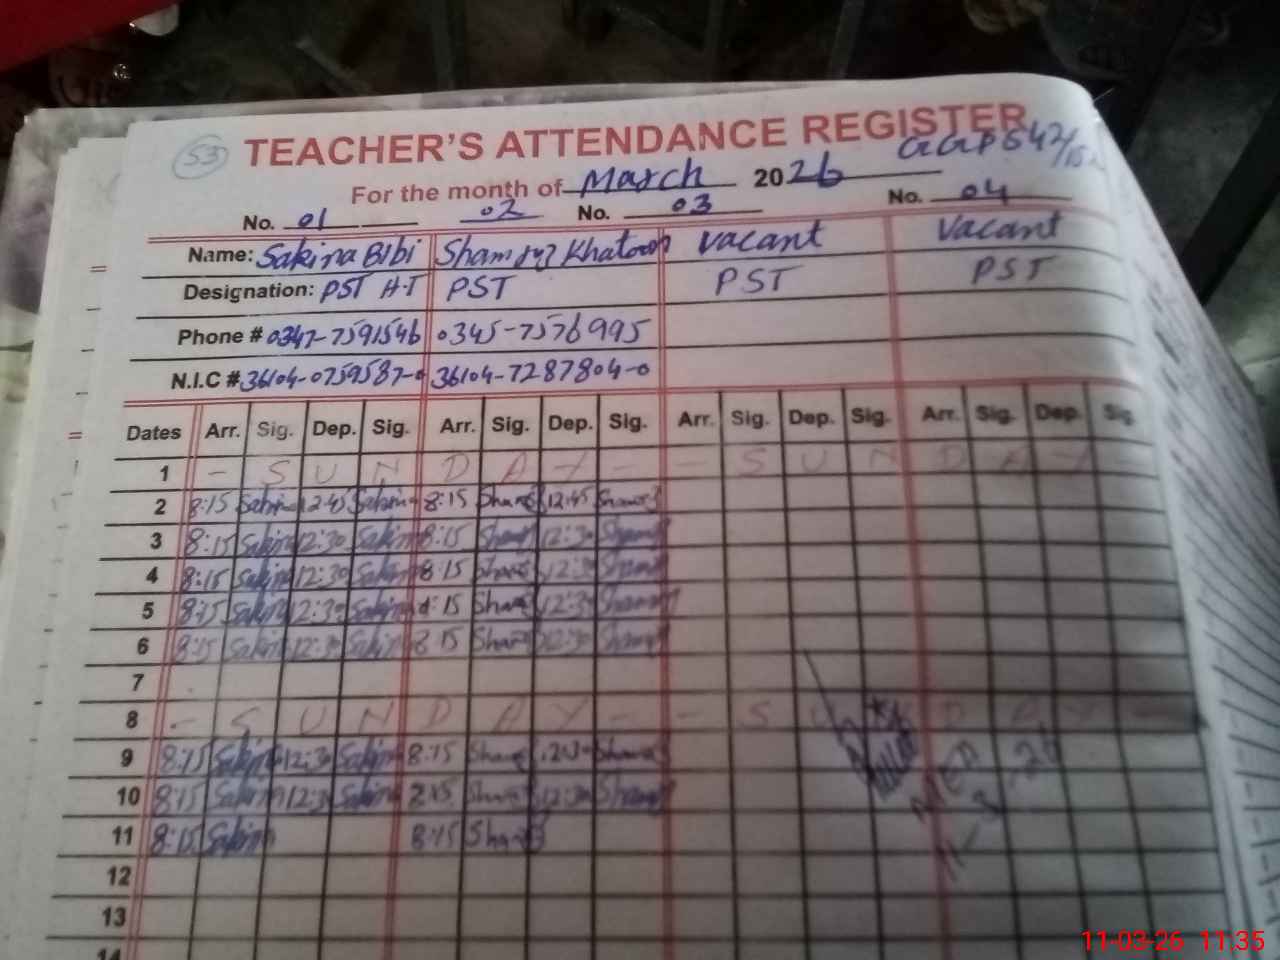 53
TEACHER'S ATTENDANCE REGISTER
GGPS 42/15
For the month of March 2026
No. 01 02 No. 03 No. 04
Name: Sakina Bibi Khatoon Vacant Vacant
Designation: PST H.T PST PST PST
Phone # 0347-7591546 0345-7576995
N.I.C # 36104-0759587-0 36104-7287804-0
Dates Arr. Sig. Dep. Sig. Arr. Sig. Dep. Sig. Arr. Sig. Dep. Sig. Arr. Sig. Dep. Sig.
1 - S U N D A Y - - S U N D A Y -
2 8:15 Sakina 12:45 Sakina 8:15 12:45
3 8:15 Sakina 12:30 Sakina 8:15 12:30
4 8:15 Sakina 12:30 Sakina 8:15 12:30
5 8:15 Sakina 12:30 Sakina 8:15 12:30
6 8:15 Sakina 12:30 Sakina 8:15 12:30
7
8 - S U N D A Y - - S U N D A Y
9 8:15 Sakina 12:30 Sakina 8:15
10 8:15 Sakina 12:30 Sakina 8:15 12:30
11 8:15 Sakina 8:15
12
13
14
11-3-26
11-03-26 11:35